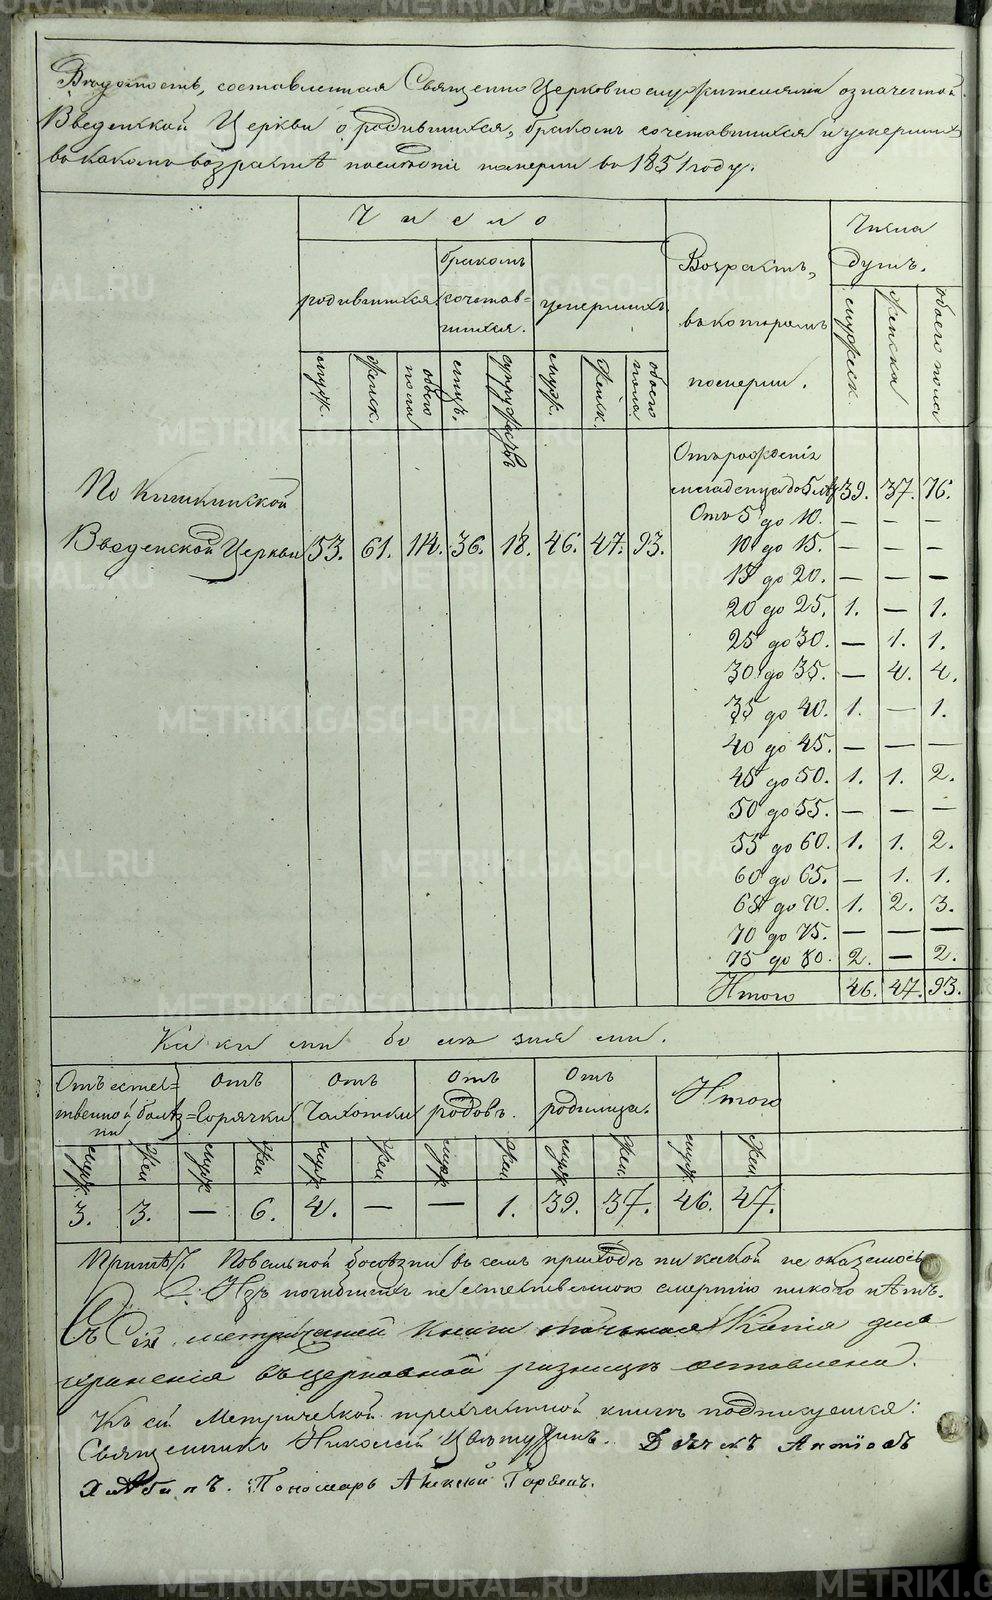 Ведомость, составленная Священно Церковнослужителями означенной
Введенской Церкви о родившихся, бракомъ сочетавшихся и умершихъ
въ какомъ возрастѣ последнiе померли въ 1851 году.
Число
родившихся.
бракомъ
сочетав-
шихся.
умершихъ
Возрастъ,
въ которомъ
померли.
Числа
душъ.
мужеск.
женска
обоего пола
муж.
женск.
обоего
пола
лицъ.
супружествъ
муж.
женск.
обоего
пола
По Кишкинской
Введенской Церкви 53. 61. 114. 36. 18. 46. 47. 93.
Отъ рожденiя
младенца до 5 лѣт 39. 37. 76.
Отъ 5 до 10. — — —
10 до 15. — — —
15 до 20. — — —
20 до 25. 1. — 1.
25 до 30. — 1. 1.
30 до 35. — 4. 4.
35 до 40. 1. — 1.
40 до 45. — — —
45 до 50. 1. 1. 2.
50 до 55. — — —
55 до 60. 1. 1. 2.
60 до 65. — 1. 1.
65 до 70. 1. 2. 3.
70 до 75. — — —
75 до 80. 2. — 2.
Итого 46. 47. 93.
Какими болезнями.
Отъ естес=
твенной болѣз=
ни
отъ
Горячки
отъ
Чахотки
отъ
родовъ.
отъ
родимца.
Итого
муж. жен муж жен муж жен муж жен муж жен. муж жен.
3. 3. — 6. 4. — — 1. 39. 37. 46. 47.
Примѣч. Повальной болѣзни въ семъ приходѣ никакой не оказалось
2. Изъ погибшихъ неестественною смертiю никого нѣтъ.
Съ Сей метрической книги точная Копiя для
хранения въ церковной ризницѣ оставлена.
Къ сей Метрической трехчастной книгѣ подписуемся:
Священникъ Николай Дьячекъ Антiовъ
Пономарь Алексий